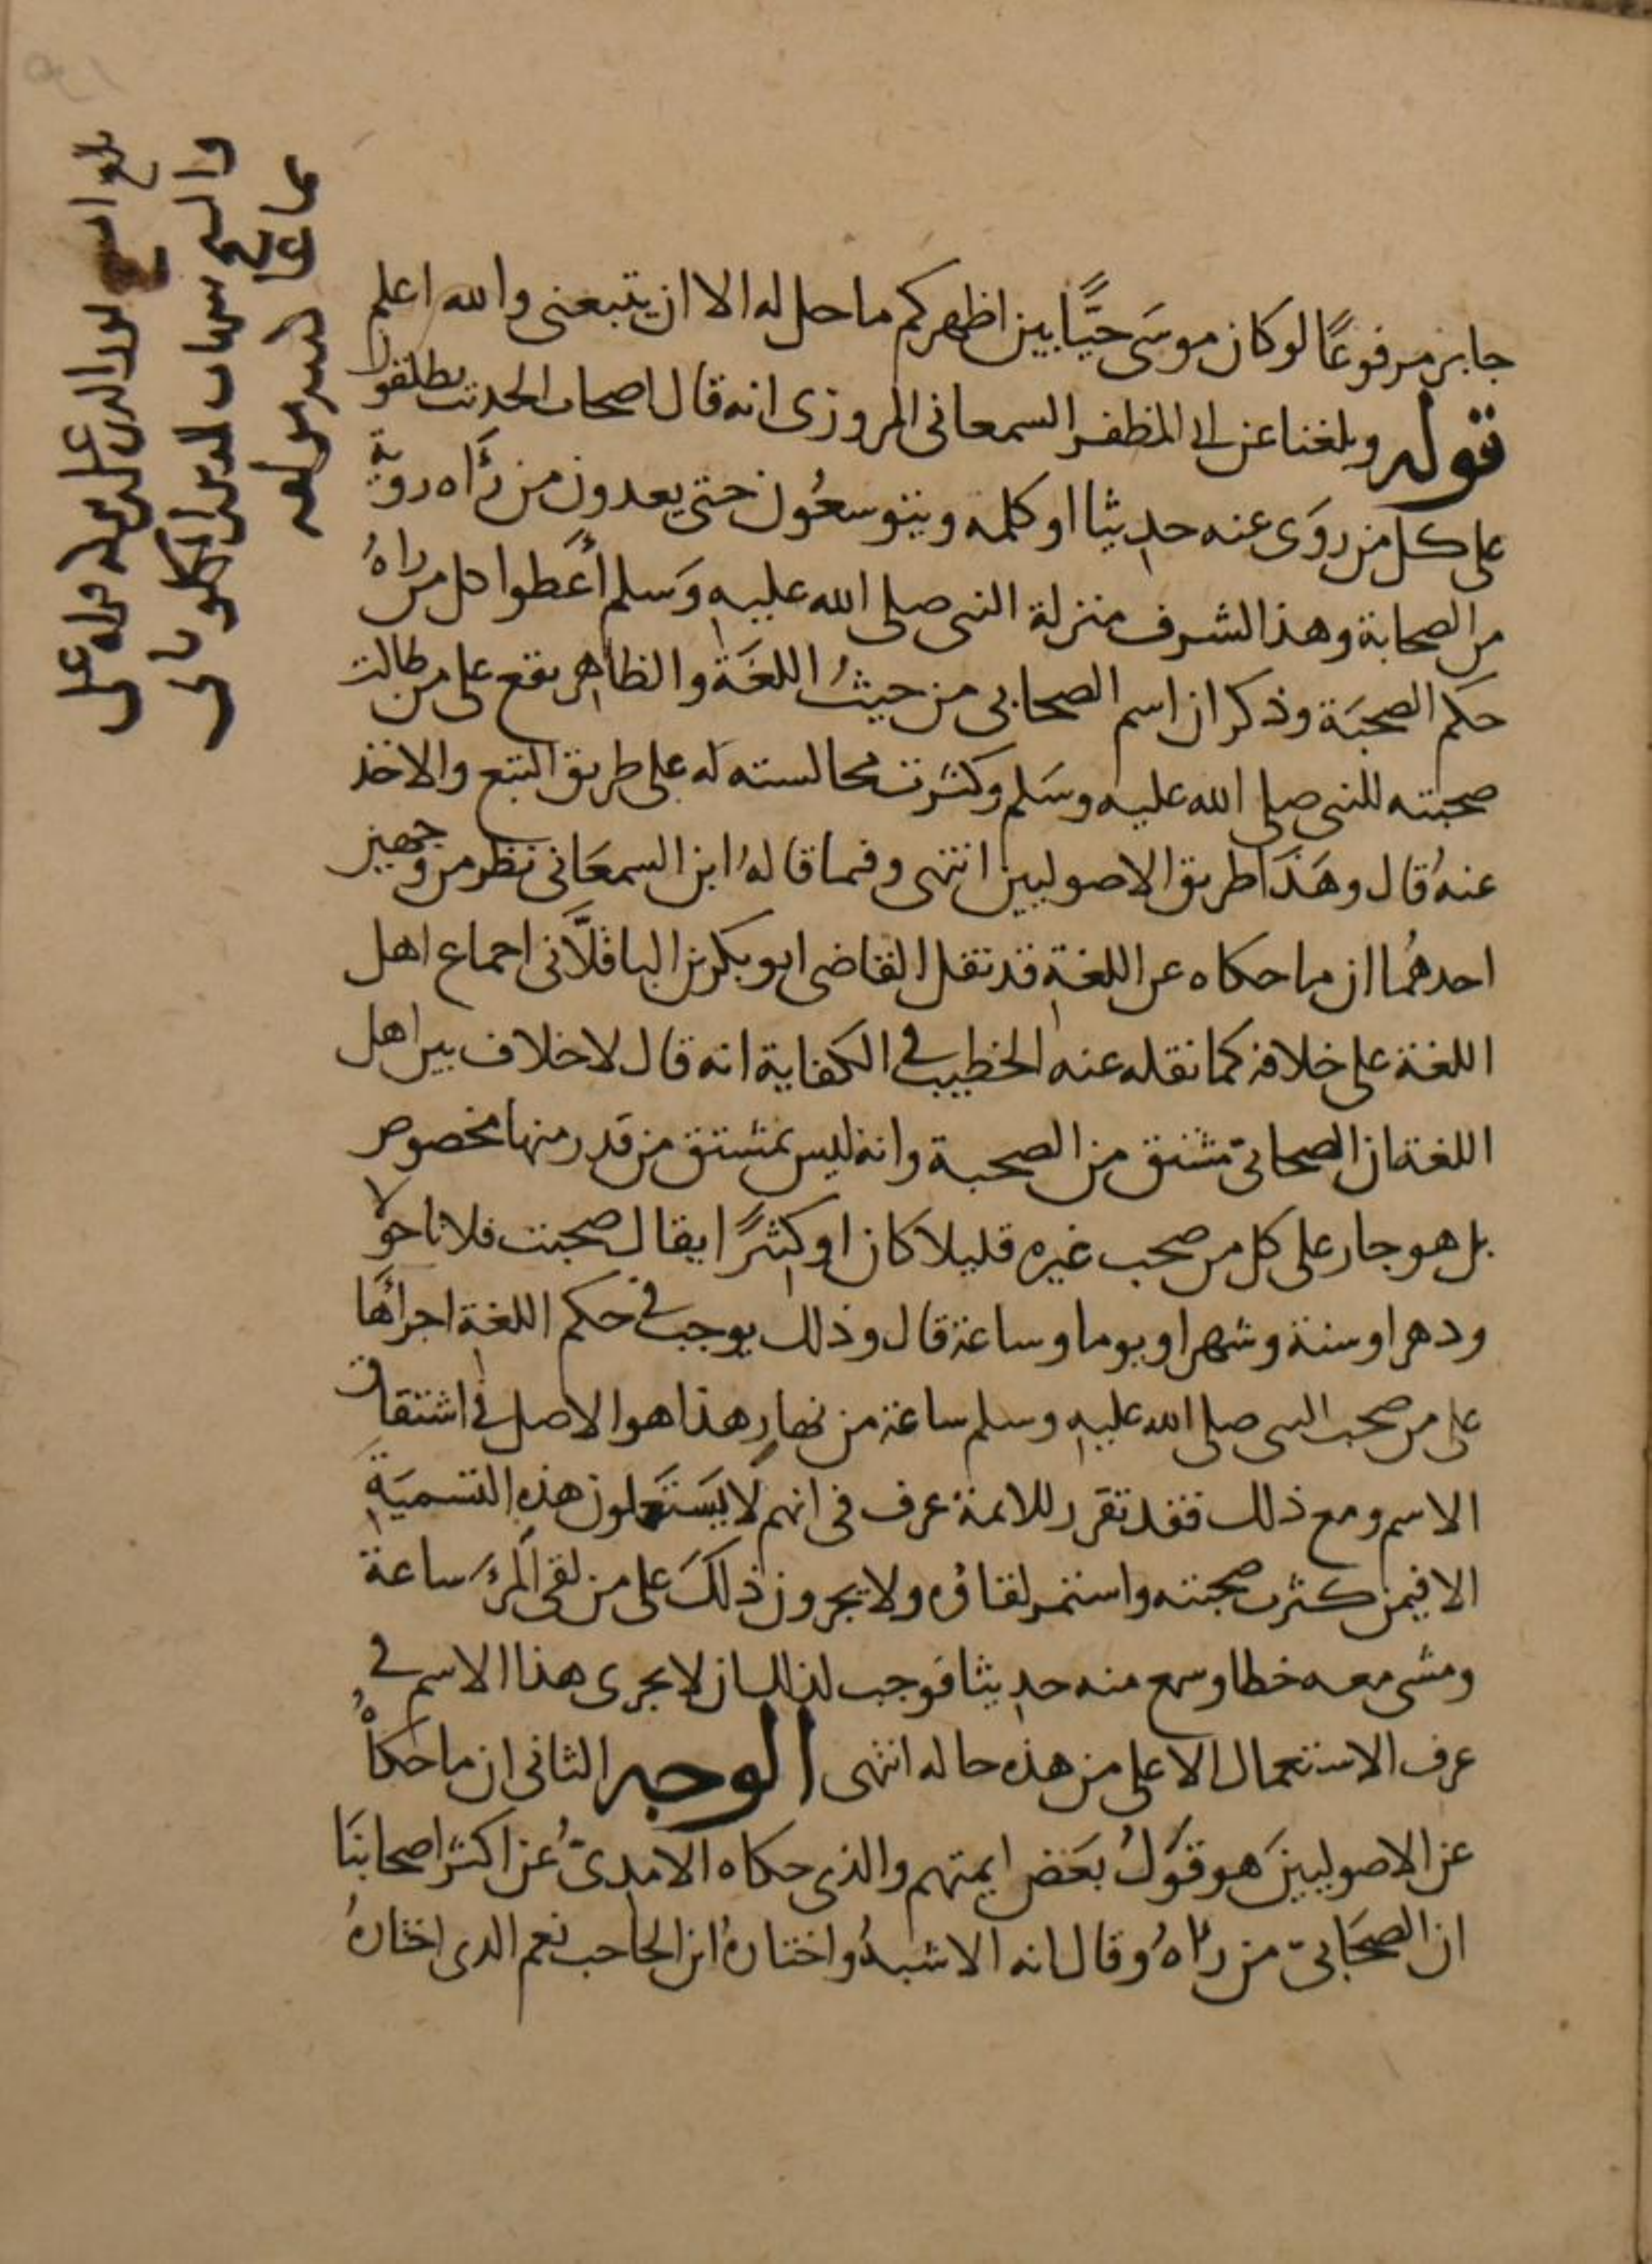 جابر مرفوعًا لو كان موسَى حيًّا بين اظهركم ما حل له الا ان يتبعنى والله اعلم
قوله وبلغنا عن ابى المظفر السمعانى المروزى انه قال اصحاب الحديث يطلقون
على كل من روَى عنه حديثا او كلمة ويتوسعُون حتى يعدون من رَآه روية
من الصحابة وهذا لشرف منزلة النبى صلى الله عليه وَسلم أعطوا كل من راهُ
حكم الصحبَة وذكر ان اسم الصحابى من حيثُ اللغَة والظاهر يقع على من طالت
صحبته للنبى صلى الله عليه وسَلم وكثرت مجالسته له على طريق التبع والاخذ
عنهُ قال وهَذا طريق الاصوليين انتهى وفيما قالهُ ابن السمعَانى نظر من وجهين
احدهُما ان ما حكاه عن اللغة قد نقل القاضى ابو بكر بن الباقلَّانى اجماع اهل
اللغة على خلافه كما نقله عنه الخطيب فى الكفاية انه قال لا خلاف بين اهل
اللغة ان الصحابىّ مشتق من الصحبة وانه ليس بمشتق من قدر منها مخصوص
بل هو جار على كل من صحب غيره قليلا كان او كثيرًا يقال صحبت فلانا حولا
ودهرا وسنة وشهرا ويوما وساعة قال وذلك يوجب فى حكم اللغة اجراؤها
على من صحب النبى صلى الله عليه وسلم ساعة من نهارٍ هذا هو الاصل فى اشتقاق
الاسم ومع ذلك فقد تقرر للائمة عرف فى انهم لا يَستَعملون هذهِ التسميَةِ
الا فيمن كثرت صحبته واستمر لقاؤه ولا يجرون ذلكَ على من لقى المرءَ ساعة
ومشى معه خطا وسمع منه حديثا فوجب لذلك ان لا يجرى هذا الاسم فى
عرف الاستعمال الا على من هذه حاله انتهى الوجه الثانى ان ما حكاهُ
عن الاصوليينَ هو قوَلُ بَعَض ايمتهم والذى حكاه الامدىّ عن اكثر اصحابنَا
ان الصحَابىّ من رآهُ وقال انه الاشبهُ واختارهُ ابن الحاجب نعم الذى اختارهُ